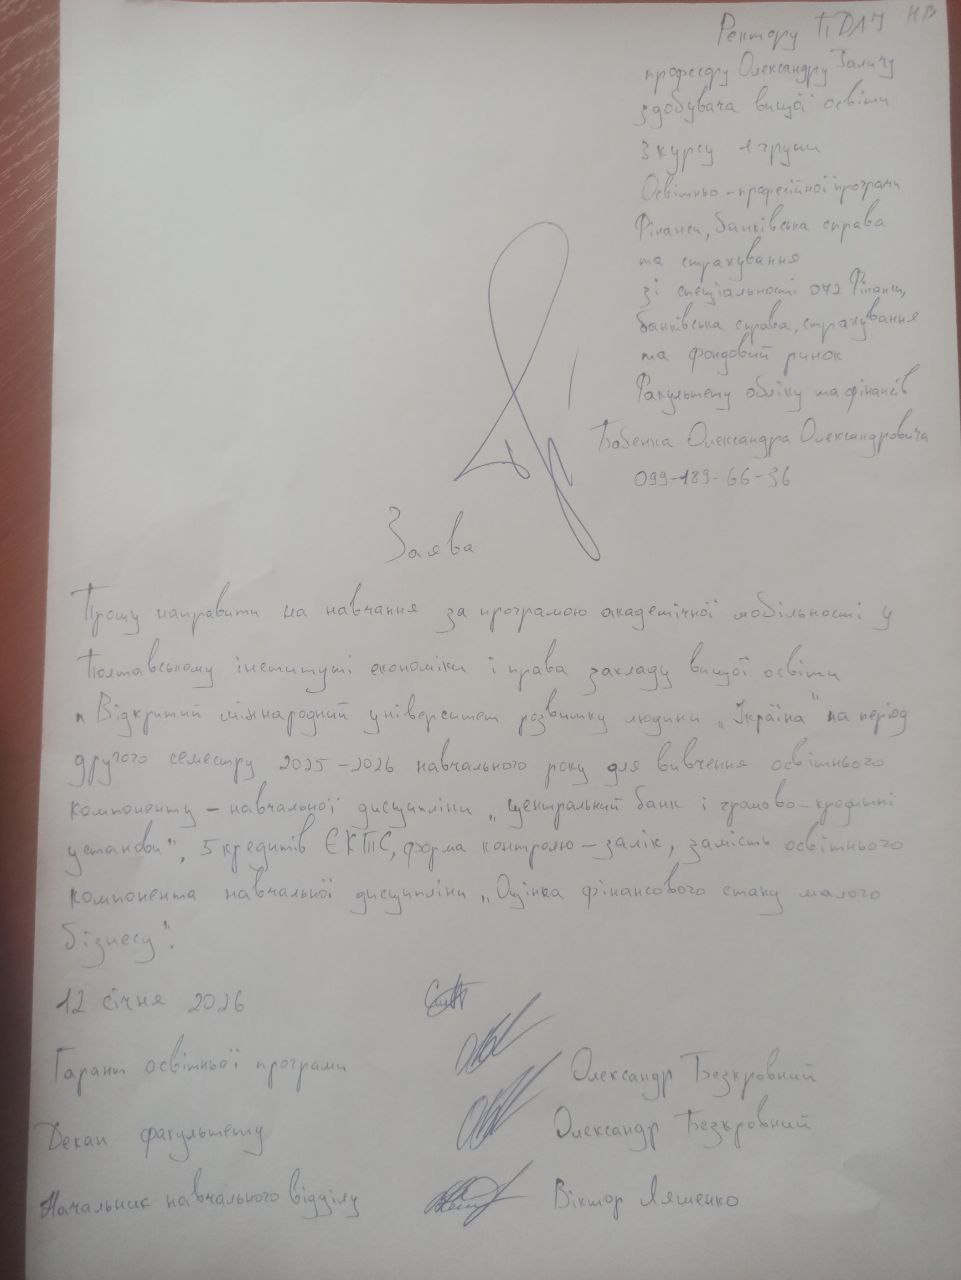 НВ
Ректору ПДАУ
професору Олександру Галичу
здобувача вищої освіти
3 курсу 1 групи
Освітньо-професійної програми
Фінанси, банківська справа
та страхування
зі спеціальності 072 Фінанси,
банківська справа, страхування
та фондовий ринок
Факультету обліку та фінансів
Бабенка Олександра Олександровича
099-189-66-36
Заява
Прошу направити на навчання за програмою академічної мобільності у
Полтавському інституті економіки і права закладу вищої освіти
"Відкритий міжнародний університет розвитку людини „Україна" на період
другого семестру 2025-2026 навчального року для вивчення освітнього
компоненту – навчальної дисципліни „Центральний банк і грошово-кредитні
установи", 5 кредитів ЄКТС, форма контролю – залік, замість освітнього
компонента навчальної дисципліни „Оцінка фінансового стану малого
бізнесу".
12 січня 2026
Гарант освітньої програми Олександр Безкровний
Декан факультету Олександр Безкровний
Начальник навчального відділу Віктор Ляшенко